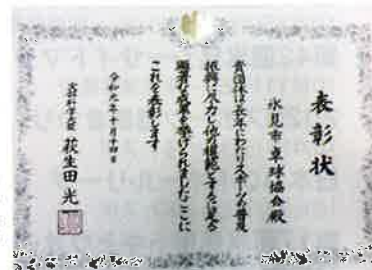 表彰状
氷見市卓球協会殿
貴団体は長年にわたりスポーツの普及
振興に尽力し他の模範とするに足る
顕著な成果を挙げられましたここに
これを表彰します
令和元年十月十四日
文部科学大臣 萩生田光一